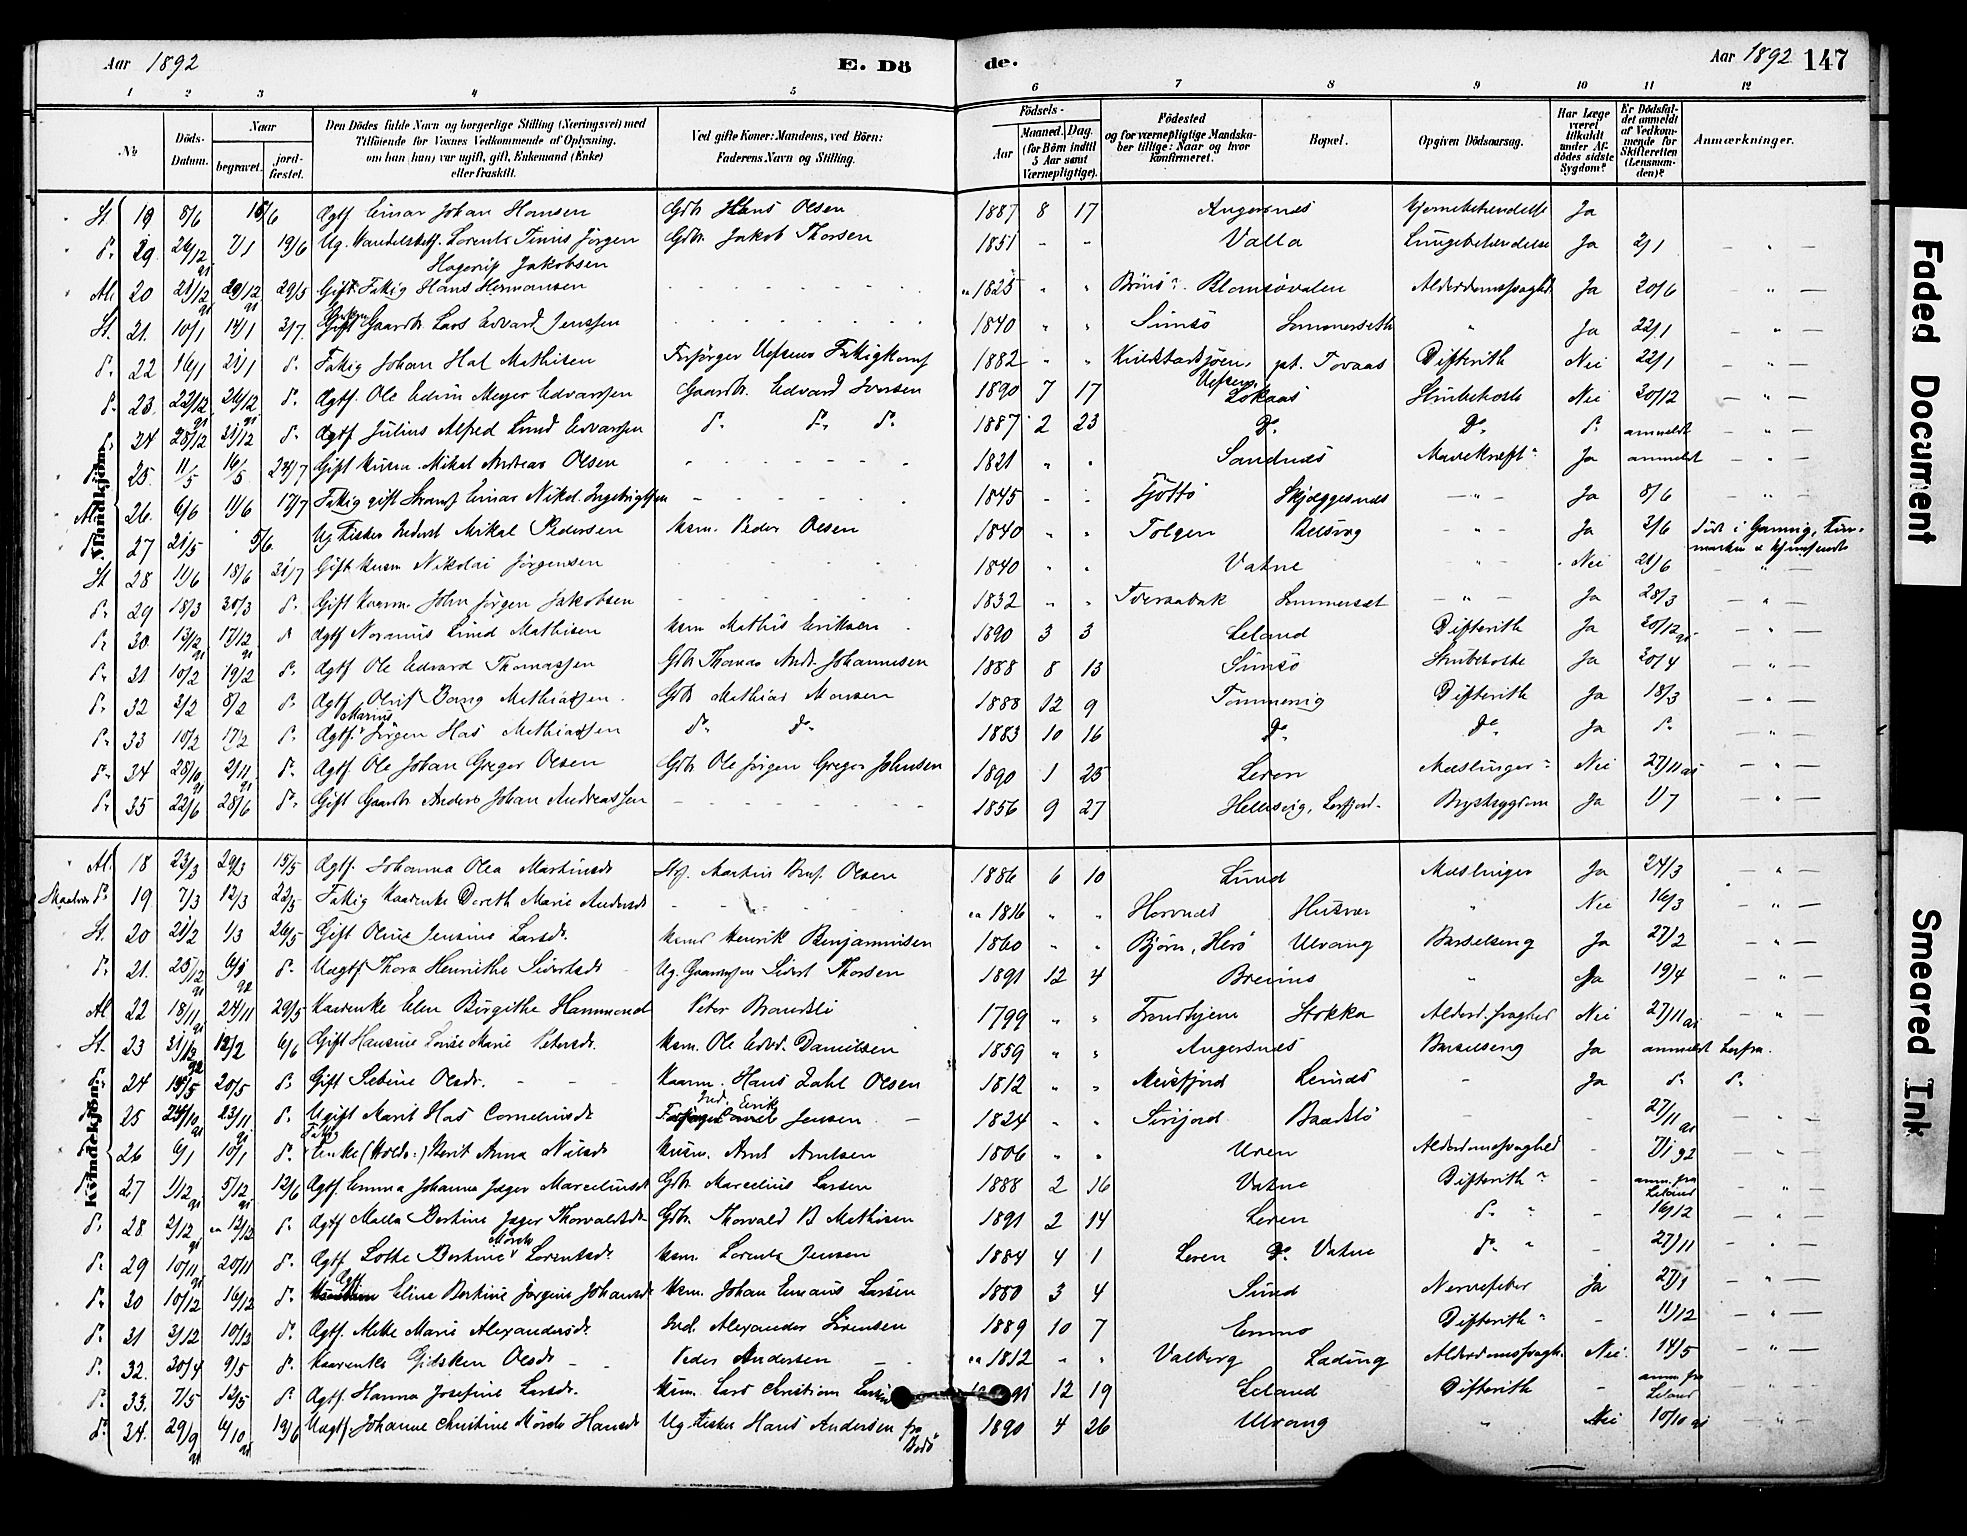 Aar 1892 E. Dö de. Aar 1892 147
1 2 3 4 5 6 7 8 9 10 11 12
№ Döds-Datum. Naar begravet. jord-fæstet. Den Dödes fulde Navn og borgerlige Stilling (Næringsvei) med Tilföiende for Voxnes Vedkommende af Oplysning, om han (hun) var ugift, gift, Enkemand (Enke) eller fraskilt. Ved gifte Koner: Mandens, ved Börn: Faderens Navn og Stilling. Födsels- Aar Maaned. Dag. (for Börn indtil 5 Aar samt Værnepligtige). Födested og for værnepligtige Mandskaber tillige: Naar og hvor konfirmeret. Bopæl. Opgiven Dödsaarsag. Har Læge været tilkaldt under Afdödes sidste Sygdom? Er Dödsfaldet anmeldt af Vedkommende for Skifteretten (Lensmanden)? Anmærkninger.
Mandkjön.
St. 19 8/6 15/6 Ægtf Einar Johan Hansen Gdbr Hans Olsen 1887 8 17 Angersnes Hjernebetændelse Ja
D. 29 24/12 91 7/1 19/6 Ug. Handelsbetj. Lorents Tinus Jörgen Gdbr. Jakob Thorsen 1851 - - Valla Lungebetændelse Ja 2/1
Hagerup Jakobsen
Al. 20 21/12 91 29/12 91 29/5 Gift Fattig Hans Hermansen 1825 Alderdomssvaghed Ja 20/6
St. 21. 10/1 14/1 3/7. Gift Gaardbr Lars Edvard Jenssen 1840 Simsö Sommerseth Ja 22/1
D. 22 16/1 21/1 D. Fattig Johan Hal Mathisen Forsörger Vefsens Fattigkom 1882 pt. Tovaas Difterith Nei 22/1
Vefsen
D. 23. 22/12 91 26/12 91 D. Ægtf. Ole Edvin Meyer Edvardsen Gaardbr. Edvard Iversen 1890 7 17 Lokaas Strubehoste Nei 30/12
D. 24 28/12 31/12 D. Ægtf Julius Alfred Lund Edvardsen D. D. D. 1887 2 23 Do. Do. D. anmeldt
D. 25. 11/5 16/5 24/7 Gift Husm. Mikal Andreas Olsen 1821 Sandnes Mavekræft Ja anmeldt
Al. 26. 6/6 11/6 17/7 Fattig gift Einar Nikol. Ingebrigtsen 1845 Tjöttö Skjæggesnes Ja 8/6
D. 27 21/5 5/6. Ug. Fisker Inderst Mikal Pedersen Husm. Peder Olsen 1840 Tolgen Belsvag Ja 2/6
St 28 11/6 18/6 31/7 Gift Husm Nikolai Jörgensen 1840 Vatne Nei 21/6
D. 29 18/3 30/3 D. Gift Kaarm. John Jörgen Jakobsen 1832 Sommerset Ja 28/3
D. 30. 13/12 91 17/12 91 D Ægtf Noranus Lund Mathisen Husm Mathis Eriksen 1890 3 3 Leland Difterith Ja 20/12 91
D. 31 10/2 19/2 D. Ægtf Ole Edvard Thomassen Gdbr Thomas Andr. Johannesen 1888 8 13 Simsö Strubehoste Ja 20/4
D. 32 2/2 8/2 D. Ægtf Oluf Bang Mathiassen Gdbr Mathias Monsen 1888 12 9 Tömmervig Difterith Ja 18/3
Marius
D. 33 10/2 17/2 D. Ægtf. Jörgen Has Mathiassen D. Do. 1883 10 16 Do. Do. Ja D.
D. 34 28/10 91 2/11 91 D. Ægtf Ole Johan Greger Olsen Gdbr Ole Jörgen Greger Johnsen 1890 1 25 Leren Mæslinger Nei 27/11 91
D. 35 22/6 28/6 D. Gift Gaardbr Anders Johan Andreassen 1856 9 27 Hellesvig, Leirfjord Brystsygdom Ja 1/7
Kvindekjön.
Al. 18 23/3 29/3 15/5 Ægtf. Johanna Olea Martinsdr Martin Olsen 1886 6 10 Lund Mæslinger Ja 24/3
D. 19 7/3 12/3 22/5 Fattig Kaarenke Doreth Marie Andersdr ca 1816 Havnnes Husvær Nei 16/3
St. 20 21/2 1/3 26/5 Gift Oline Jensine Larsdr. Husmd Henrik Benjaminsen 1860 Bjørn, Herö Ulvang Barselseng Ja 27/2
D. 21. 25/12 91 6/3 92 D. Uægtf Thora Henrikke Sivertsdr Ug. Gaardmsøn Sivert Thorsen 1891 12 4 Breimo Ja 19/4
Al 22 18/11 91 24/11 29/5 Kaarenke Elen Birgithe Hammond Peter Brandslö 1799 Trondhjem Stokka Alderd.svaghed Nei 27/11 91
St. 23 31/12 92 12/2 6/6 Gift Hansine Lovise Marie Petersdr. Husm. Ole Edvd. Danielsen 1859 Angersnes Barselseng Ja anmeldt herfra.
D. 24 14/5 20/5 D. Gift Sebine Olsdr. Kaarm. Hans Zahl Olsen 1812 Meisfjord Leines Ja D. D.
Ind. Erik
D. 25 24/10 91 23/11 91 D. Ugift Marit Has Corneliusdr Jensen 1824 Baadslö 27/11 91
Fattig
26 6/1 10/1 D. Enke Berit Anna Nilsdr Husm. Arnt Arntsen 1806 Uren Alderdomssvaghed 7/1 92
27 1/12 91 5/12 91 12/6 Ægtf Emma Johanna Jæger Marceliusdr Gdbr. Marcelius Larsen 1888 2 16 Vatne Difterith anm. fra Leland
D. 28 2/12 91 12/12 D. Ægtf Malla Bertine Jæger Thorvaldsdr Gdbr. Thorvald B Mathisen 1891 2 14 Leren D. 16/12
D. 29 10/11 91 20/11 D. Ægtf. Lotte Bertine Lorentsdr. Husm. Lorents Jensen 1884 4 1 Leren Do. Vatne Do. 27/11
D. 30 10/12 16/12 D. Ægtf Eline Bertine Jörgine Johansdr Husm. Johan Emaus Larsen 1880 3 4 Sund Nervefeber Ja 27/1
D. 31 3/12 10/12 D. Ægtf. Mette Marie Alexandersdr. Ind. Alexander Sörensen 1889 10 7 Difterith 11/12
D. 32. 30/4 9/5 D. Kaarenke Gidsken Olsdr Peder Andersen ca 1812 Valberg Lading Alderdomssvagh. Nei. 14/5
D. 33. 7/5 12/5 D. Ægtf. Hanna Josefine Larsdr. Husm. Lars Christian 91 12 19 Leland Difterith anm. fra Leland
D. 34. 29/9 91 4/10 91 19/6 Uægtf. Johanne Christine Hansdr Ug. Fisker Hans Andersen fra Bodö 1890 4 26 Ulvang Nei 10/10 91
Faded Document
Smeared Ink